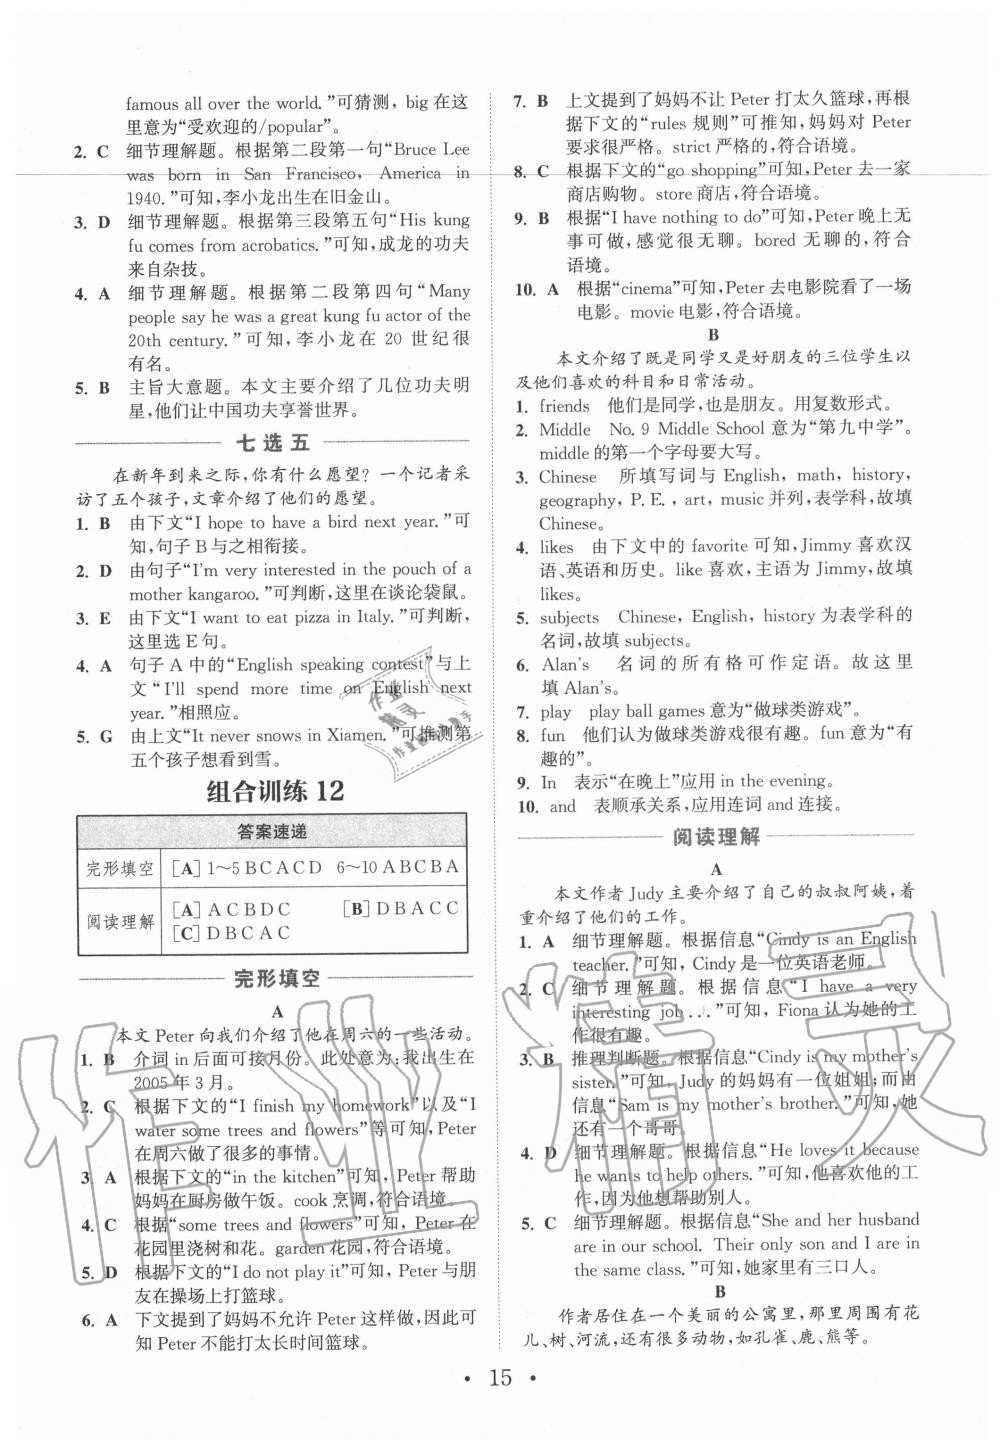 famous all over the world.”可猜测，big在这
里意为“受欢迎的/popular”。
2. C 细节理解题。根据第二段第一句“Bruce Lee
was born in San Francisco, America in
1940.”可知,李小龙出生在旧金山。
3. D 细节理解题。根据第三段第五句“His kung
fu comes from acrobatics.”可知,成龙的功夫
来自杂技。
4. A 细节理解题。根据第二段第四句“Many
people say he was a great kung fu actor of the
20th century.”可知,李小龙在 20 世纪很
有名。
5. B 主旨大意题。本文主要介绍了几位功夫明
星,他们让中国功夫享誉世界。
七选五
在新年到来之际,你有什么愿望？一个记者采
访了五个孩子,文章介绍了他们的愿望。
1. B 由下文“I hope to have a bird next year.”可
知,句子B与之相衔接。
2. D 由句子“I'm very interested in the pouch of a
mother kangaroo.”可判断,这里在谈论袋鼠。
3. E 由下文“I want to eat pizza in Italy.”可判断,
这里选E句。
4. A 句子A中的“English speaking contest”与上
文“I'll spend more time on English next
year.”相照应。
5. G 由上文“It never snows in Xiamen.”可推测第
五个孩子想看到雪。
组合训练12
答案速递
完形填空 [A]1～5 B C A C D 6～10 A B C B A
阅读理解 [A] A C B D C [B] D B A C C
[C] D B C A C
完形填空
A
本文Peter向我们介绍了他在周六的一些活动。
1. B 介词in后面可接月份。此处意为:我出生在
2005年3月。
2. C 根据下文的“I finish my homework”以及“I
water some trees and flowers”等可知,Peter
在周六做了很多的事情。
3. A 根据下文的“in the kitchen”可知,Peter帮助
妈妈在厨房做午饭。cook烹调,符合语境。
4. C 根据“some trees and flowers”可知,Peter在
花园里浇树和花。garden花园,符合语境。
5. D 根据下文的“I do not play it”可知,Peter与朋
友在操场上打篮球。
6. A 下文提到了妈妈不允许Peter这样做,因此可
知Peter不能打太长时间篮球。
7. B 上文提到了妈妈不让Peter打太久篮球,再根
据下文的“rules 规则”可推知,妈妈对 Peter
要求很严格。strict严格的,符合语境。
8. C 根据下文的“go shopping”可知,Peter去一家
商店购物。store商店,符合语境。
9. B 根据“I have nothing to do”可知,Peter晚上无
事可做,感觉很无聊。bored 无聊的,符合
语境。
10. A 根据“cinema”可知,Peter去电影院看了一场
电影。movie电影,符合语境。
B
本文介绍了既是同学又是好朋友的三位学生以
及他们喜欢的科目和日常活动。
1. friends 他们是同学,也是朋友。用复数形式。
2. Middle No. 9 Middle School意为“第九中学”。
middle的第一个字母要大写。
3. Chinese 所填写词与English, math, history,
geography, P. E., art, music并列,表学科,故填
Chinese。
4. likes 由下文中的 favorite 可知,Jimmy 喜欢汉
语、英语和历史。like喜欢,主语为Jimmy,故填
likes。
5. subjects Chinese, English, history为表学科的
名词,故填subjects。
6. Alan's 名词的所有格可作定语。故这里
填Alan's。
7. play play ball games意为“做球类游戏”。
8. fun 他们认为做球类游戏很有趣。fun意为“有
趣的”。
9. In 表示“在晚上”应用in the evening。
10. and 表顺承关系,应用连词and连接。
阅读理解
A
本文作者Judy主要介绍了自己的叔叔阿姨,着
重介绍了他们的工作。
1. A 细节理解题。根据信息“Cindy is an English
teacher.”可知,Cindy是一位英语老师。
2. C 细节理解题。根据信息“I have a very
interesting job...”可知,Fiona认为她的工
作很有趣。
3. B 推理判断题。根据信息“Cindy is my mother's
sister.”可知,Judy的妈妈有一位姐姐;而由
信息“Sam is my mother's brother.”可知,她
还有一个哥哥。
4. D 细节理解题。根据信息“He loves it because
he wants to help others.”可知,他喜欢他的工
作,因为他想帮助别人。
5. C 细节理解题。根据信息“She and her husband
are in our school. Their only son and I are in
the same class.”可知,她家里有三口人。
B
作者居住在一个美丽的公寓里,那里周围有花
儿、树、河流,还有很多动物,如孔雀、鹿、熊等。
• 15 •
作业精灵